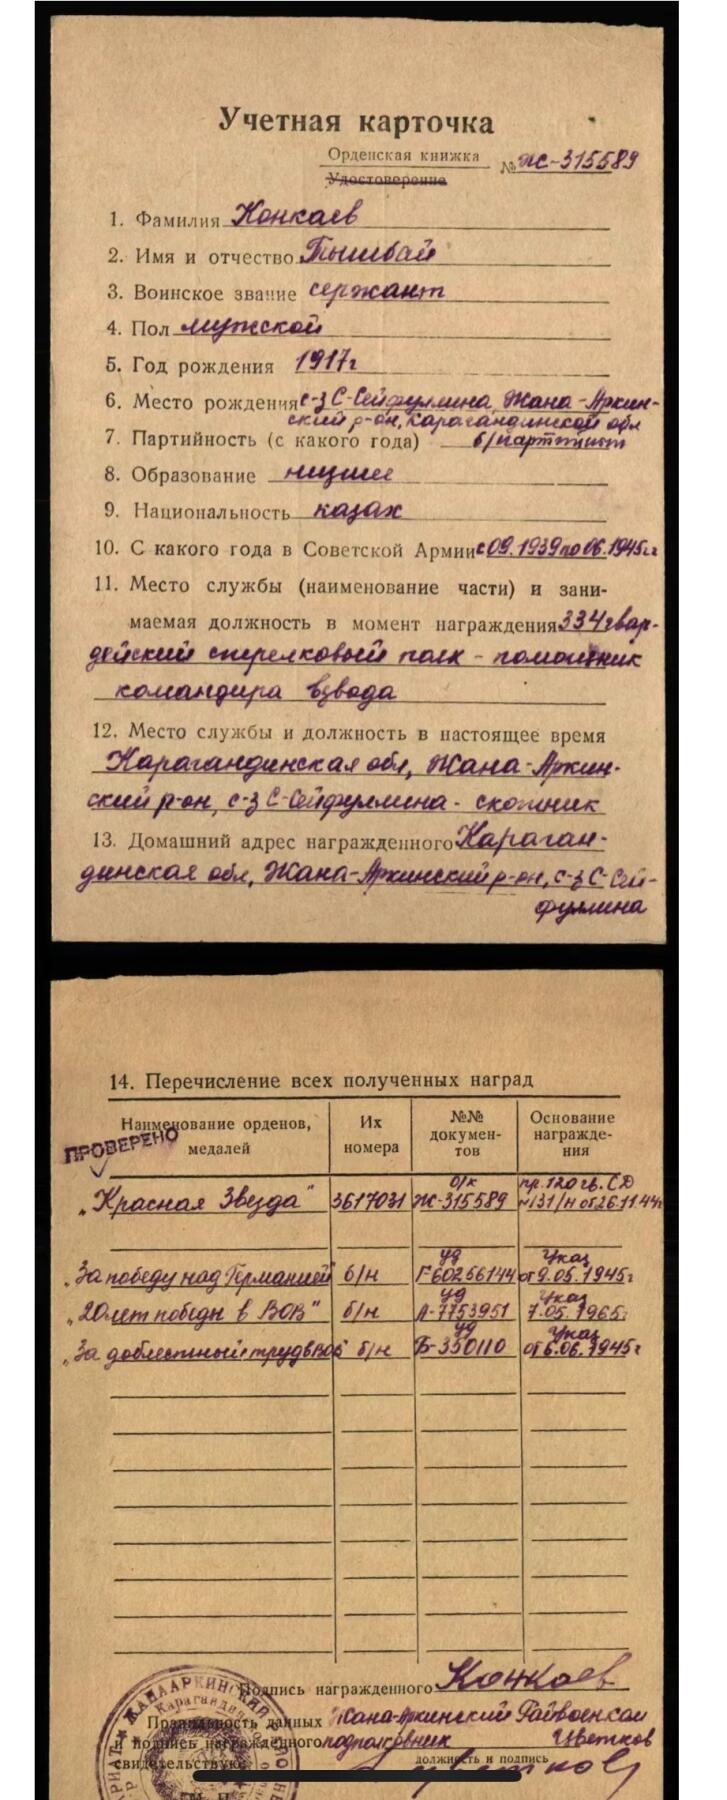 Учетная карточка
Орденская книжка № Ж-315589
Удостоверение
1. Фамилия Конкаев
2. Имя и отчество Тышбай
3. Воинское звание сержант
4. Пол мужской
5. Год рождения 1917г
6. Место рождения с-з С-Сейфуллина, Жана-Аркин-
ский р-он, Карагандинской обл
7. Партийность (с какого года) б/партийный
8. Образование низшее
9. Национальность казах
10. С какого года в Советской Армии с 09.1939 по 06.1945г.
11. Место службы (наименование части) и зани-
маемая должность в момент награждения 334 гвар-
дейский стрелковый полк - помощник
командира взвода
12. Место службы и должность в настоящее время
Карагандинская обл, Жана-Аркин-
ский р-он, с-з С-Сейфуллина - скотник
13. Домашний адрес награжденного Караган-
динская обл, Жана-Аркинский р-он, с-з С-Сей-
фуллина
14. Перечисление всех полученных наград
Наименование орденов, медалей
Их номера
№№ докумен-
тов
Основание
награжде-
ния
ПРОВЕРЕНО
"Красная Звезда" 3617031 о/к Ж-315589 пр. 120 гв. СД №131/н от 26.11.44г
"За победу над Германией" б/н уд Г60256144 Указ от 9.05.1945г
"20 лет победы в ВОВ" б/н уд А-7753951 Указ 7.05.1965г
"За доблестный труд в ВОВ" б/н уд Б-350110 Указ от 6.06.1945г
Подпись награжденного Конкаев
Правильность данных Жана-Аркинский Райвоенком
и подпись награжденного подполковник Цветков
свидетельствую должность и подпись
ЖАНААРКИНСКИЙ
М. П.